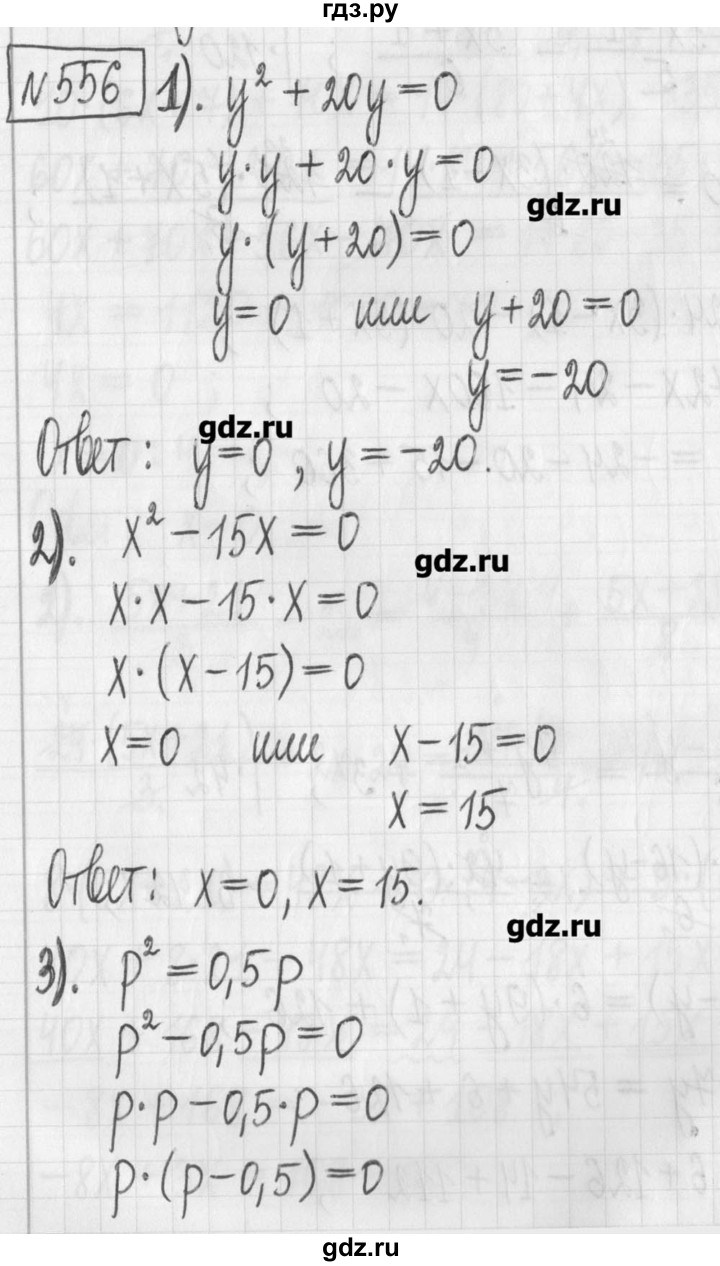 гдз.ру
№556 1). y² + 20y = 0
y·y + 20·y = 0
gdz.ru
y·(y+20) = 0
y=0 или y+20=0
y=-20
gdz.ru
Ответ: y=0, y=-20.
2). x² - 15x = 0
gdz.ru
x·x - 15·x = 0
x·(x-15) = 0
x=0 или x-15=0
x=15
Ответ: x=0, x=15.
gdz.ru
3). p² = 0,5p
p² - 0,5p = 0
p·p - 0,5·p = 0
p·(p-0,5) = 0
gdz.ru